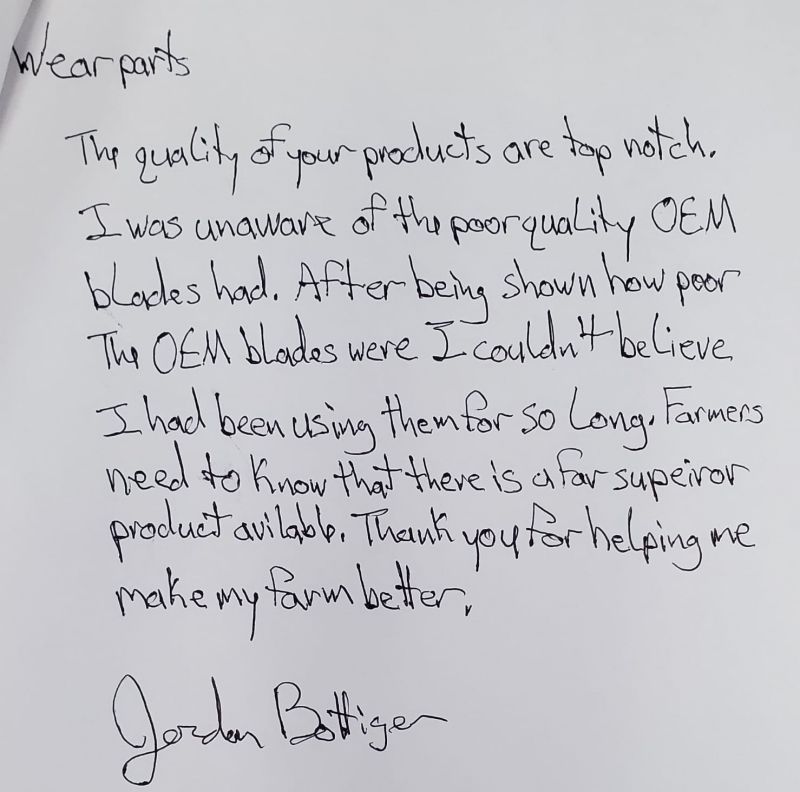 Wear parts
The quality of your products are top notch.
I was unaware of the poor quality OEM
blades had. After being shown how poor
The OEM blades were I couldn't believe
I had been using them for so long. Farmers
need to know that there is a far supeiror
product avilable. Thank you for helping me
make my farm better.
Jordan Bottiger